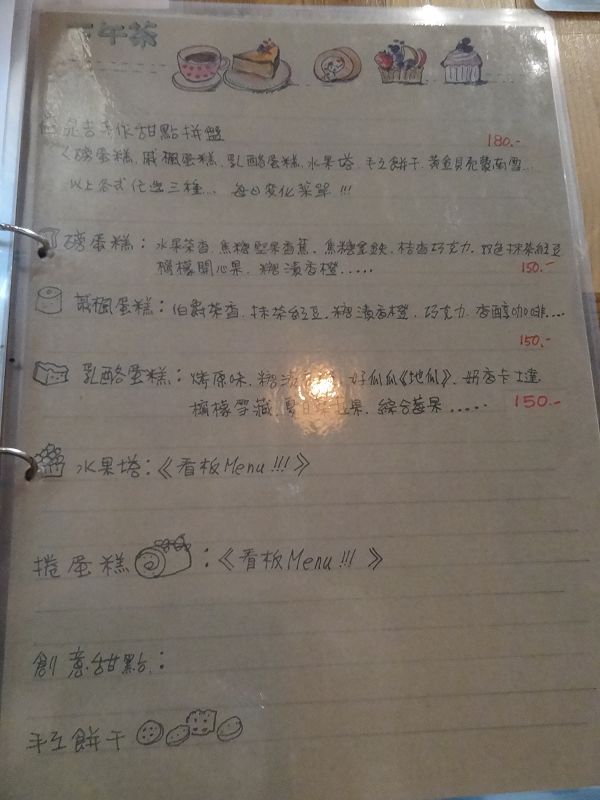 下午茶
手作甜點拼盤 180.-
《磅蛋糕、戚楓蛋糕、乳酪蛋糕、水果塔、手工餅干、黃金貝殼
以上各式任選三種... 每日變化菜單!!!
磅蛋糕：水果茶香、焦糖堅果香蕉、焦糖金鑽、桔香巧克力、双色抹茶紅豆
檸檬開心果、糖漬香橙..... 150.-
戚楓蛋糕：伯爵茶香、抹茶紅豆、糖漬香橙、巧克力、香醇咖啡...
150.-
乳酪蛋糕：烤原味、糖漬 好瓜瓜《地瓜》、奶香卡士達
檸檬雪藏、夏日 果、綜合莓果..... 150.-
水果塔：《看板Menu!!!》
捲蛋糕：《看板Menu!!!》
創意甜點：
手工餅干